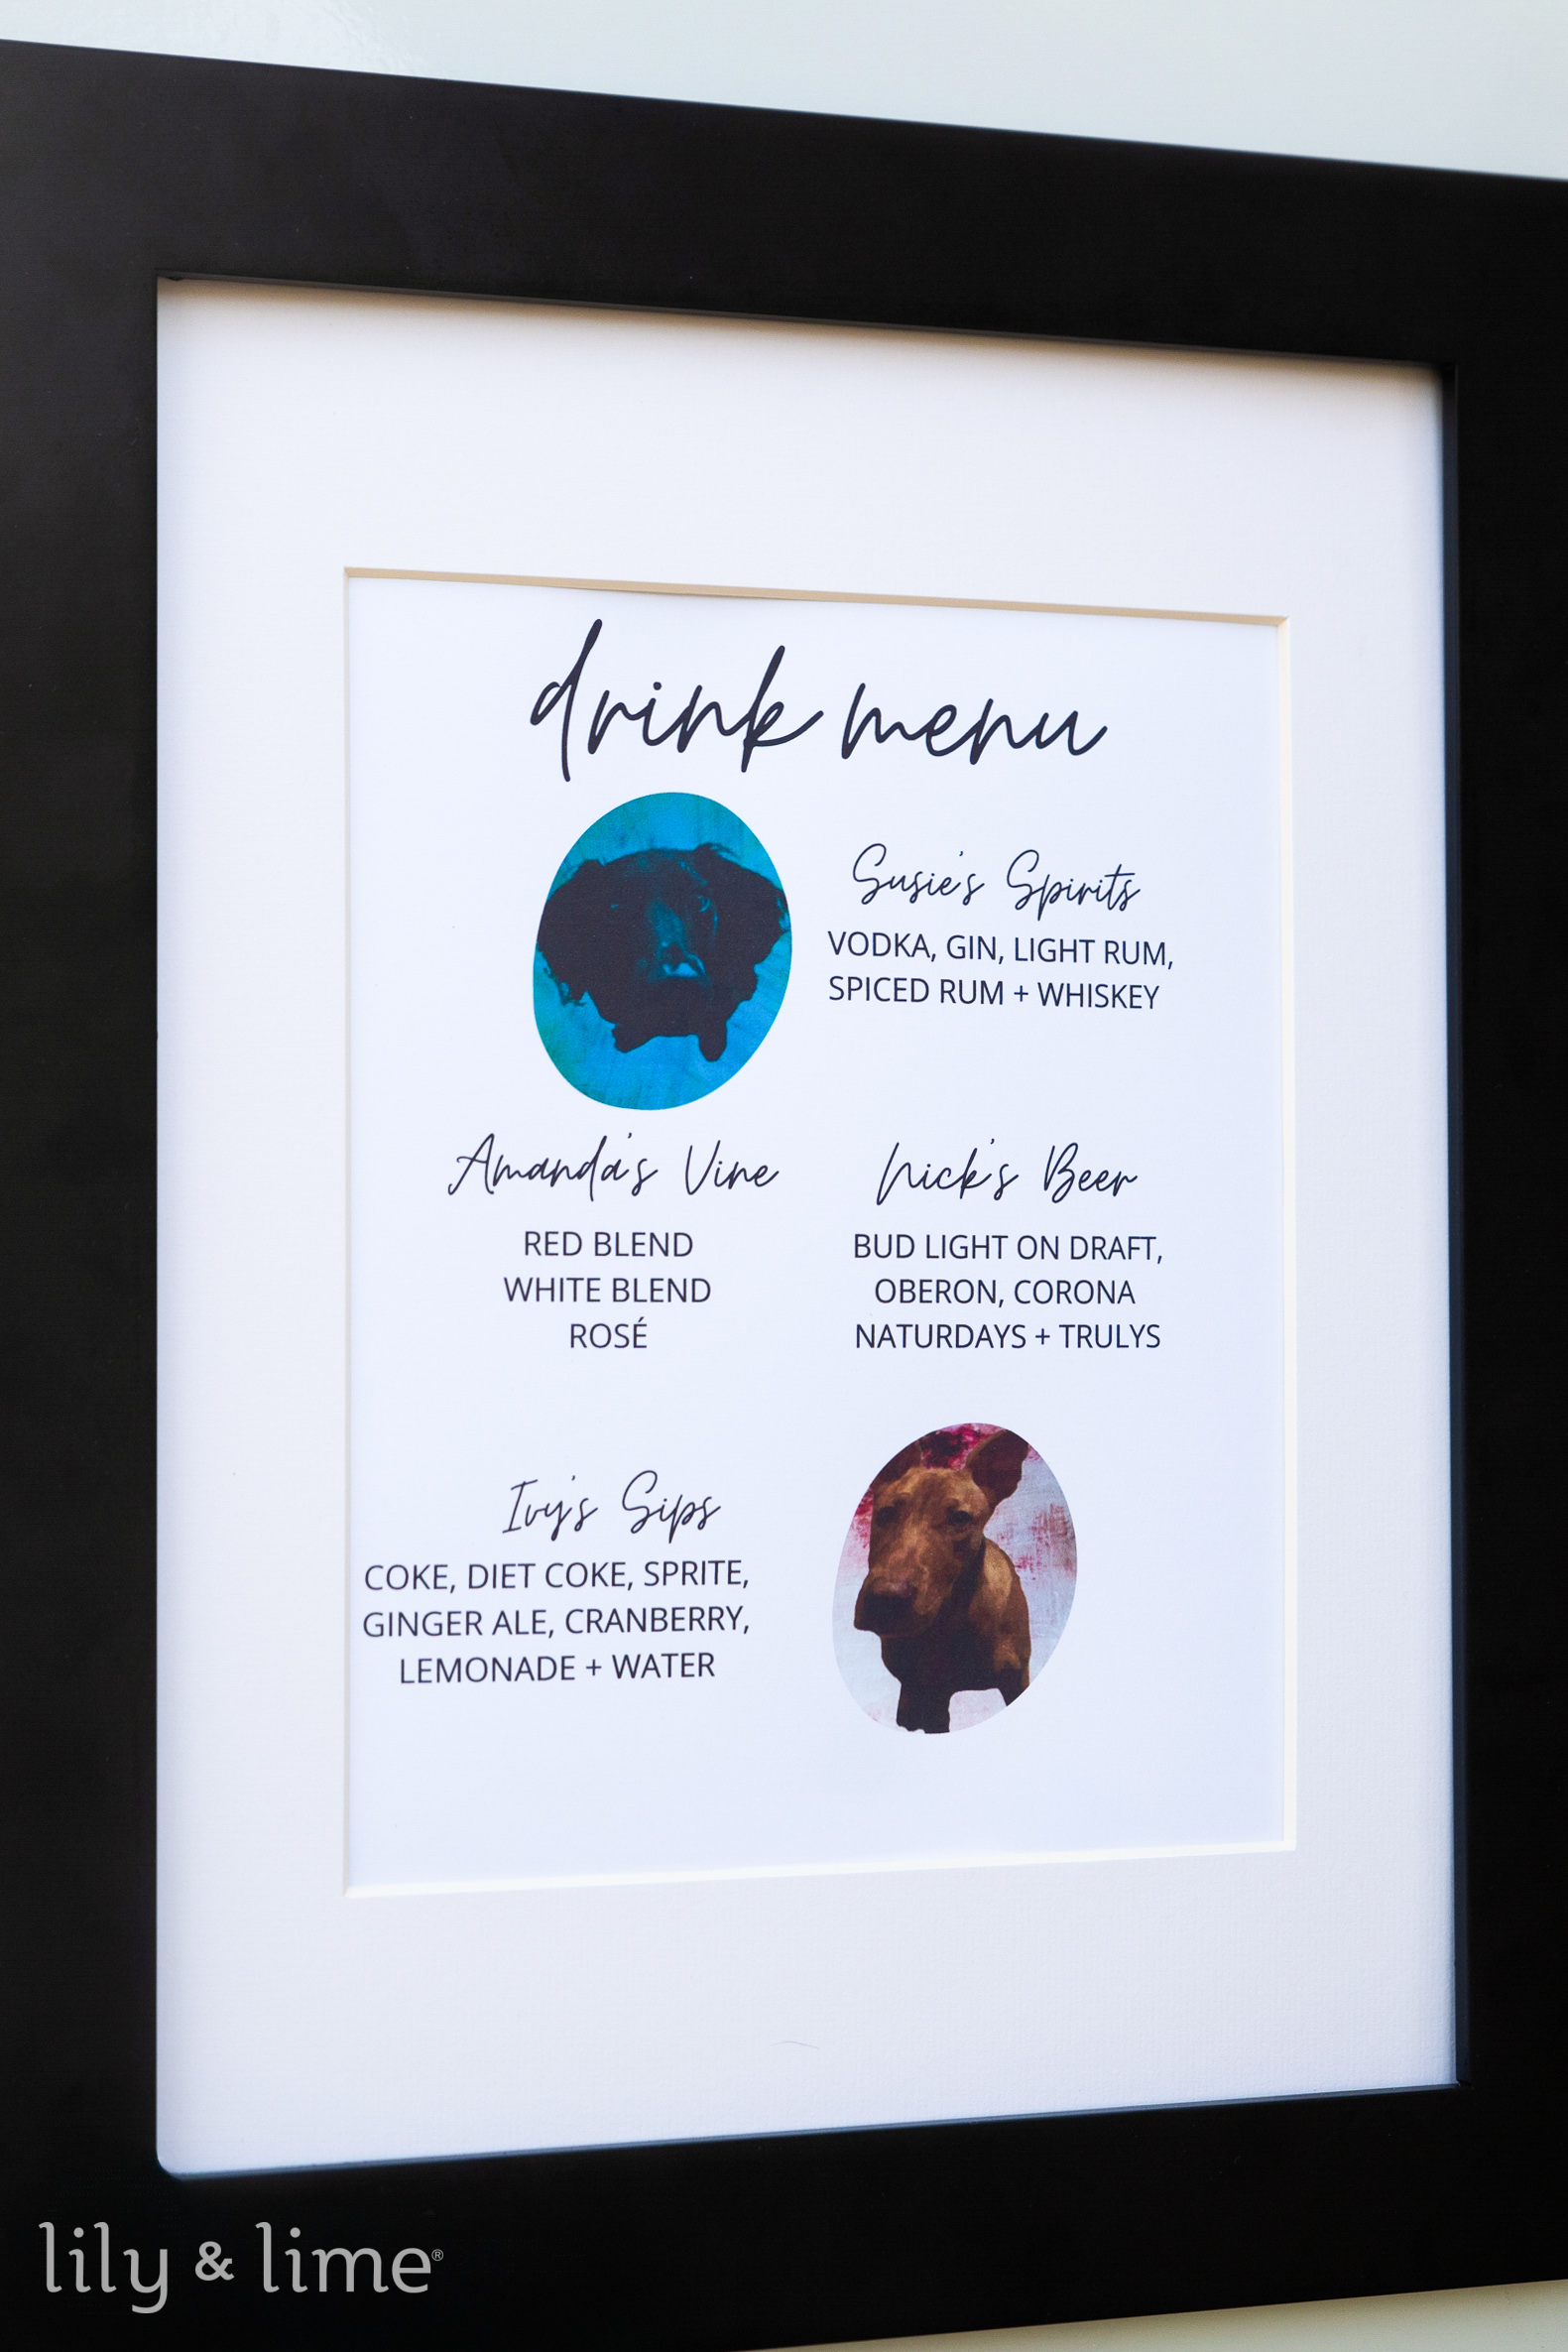 drink menu
Susie's Spirits
VODKA, GIN, LIGHT RUM,
SPICED RUM + WHISKEY
Amanda's Vine
RED BLEND
WHITE BLEND
ROSÉ
Nick's Beer
BUD LIGHT ON DRAFT,
OBERON, CORONA
NATURDAYS + TRULYS
Ivy's Sips
COKE, DIET COKE, SPRITE,
GINGER ALE, CRANBERRY,
LEMONADE + WATER
lily & lime®